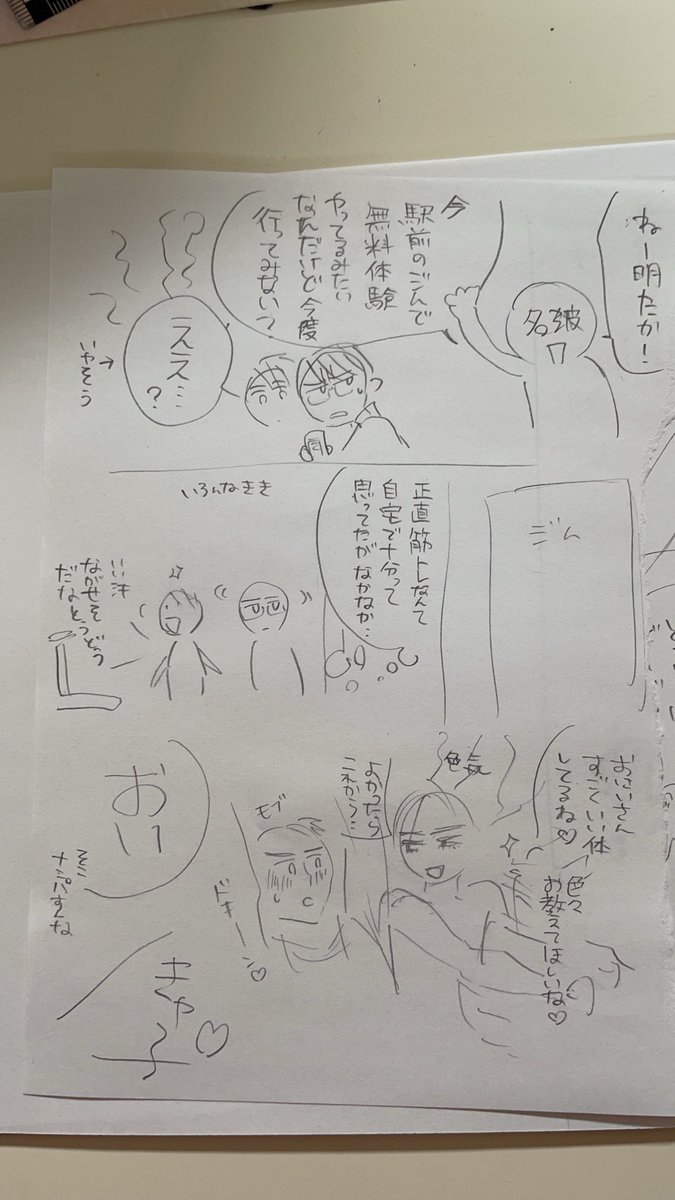 ねー明たか!
今
駅前のジムで
無料体験
やってるみたい
なんだけど今度
行ってみない?
ええ…
?
いやそう
ジム
正直筋トレなんて
自宅で十分って
思ってたがなかなか…
いろんなきき
いい汗
ながせそ
だなとうどう
おにいさん
すごくいい体
してるね♡
色々
お教えてほしいな♡
色気
よかったら
これから…
モブ
ドキーン♡
おい
そこ
ナンパすんな
きゃ♡